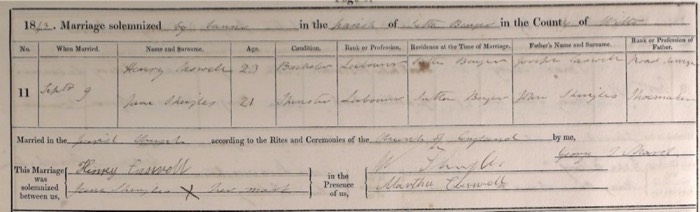 18 Marriage solemnized by banns in the parish of Sutton Benger in the County of Wilts
No. When Married. Name and Surname. Age. Condition. Rank or Profession. Residence at the Time of Marriage. Father's Name and Surname. Rank or Profession of Father.
Henry Caswell 23 Bachelor Labourer Sutton Benger Joseph Caswell
11 Sept 9
Jane Shingles 21 Spinster Labourer Sutton Benger John Shingles Shoemaker
Married in the parish Church according to the Rites and Ceremonies of the Church of England by me,
This Marriage was solemnized between us, Henry Caswell Jane Shingles X her mark in the Presence of us, W Shingles Martha Caswell